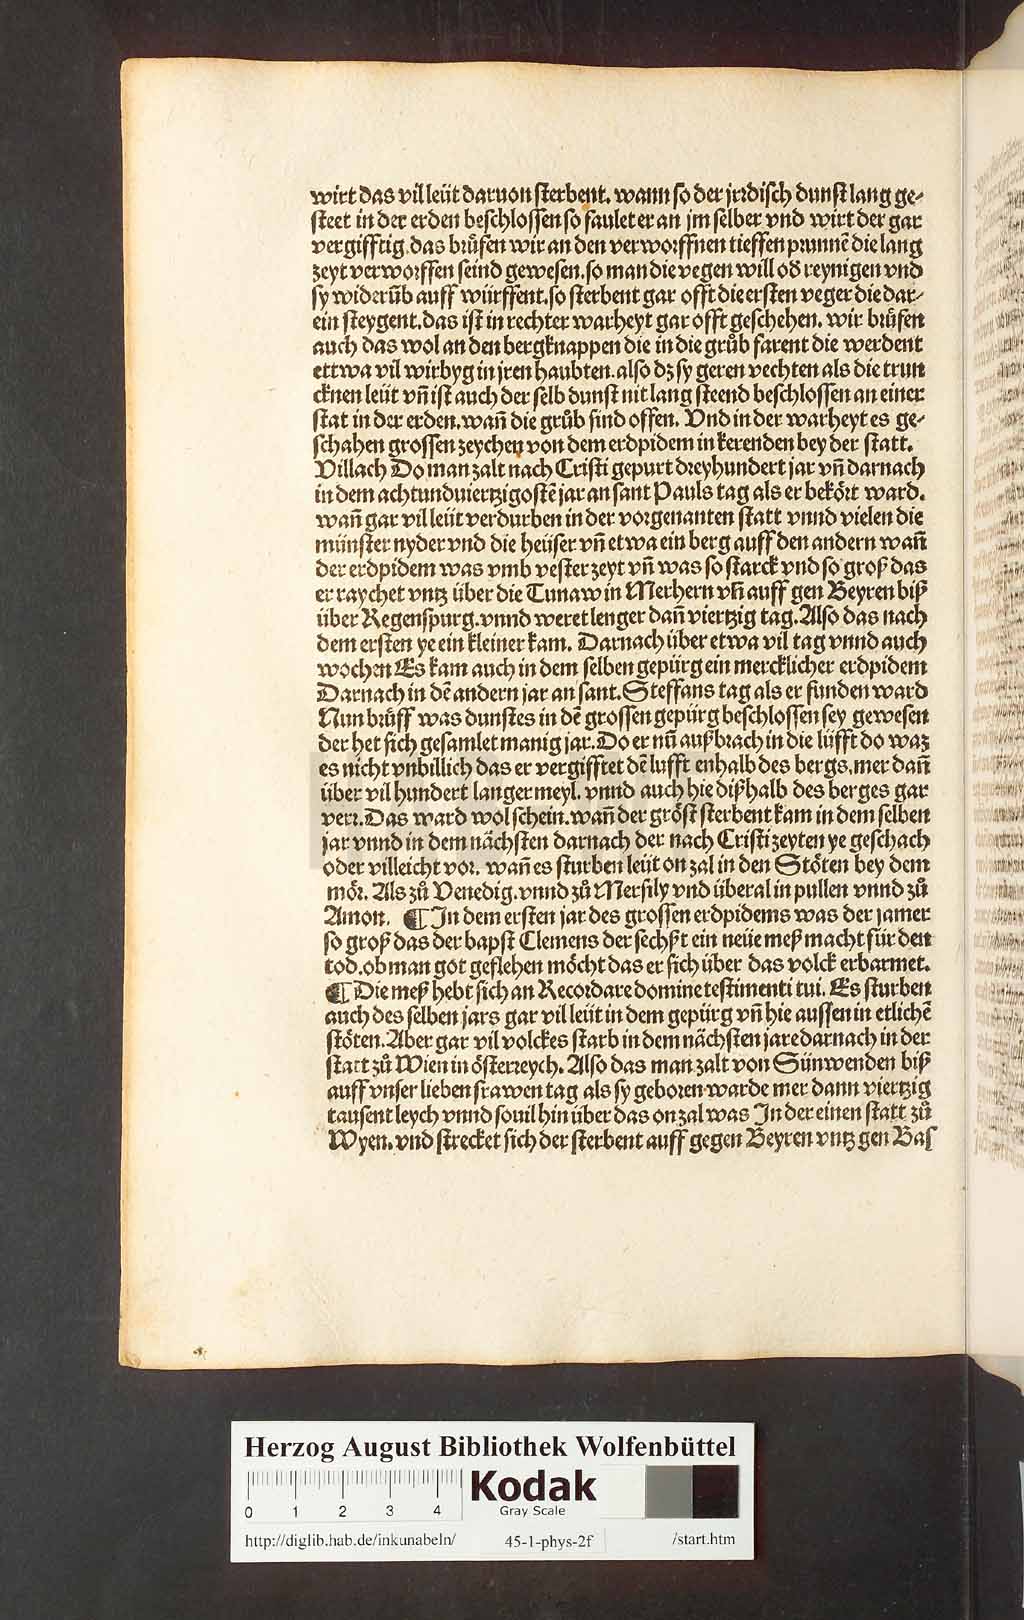 wirt das vil leüt daruon sterbent. wann so der jrꝛdisch dunst lang ge⸗
steet in der erden beschlossen so faulet er an jm selber vnd wirt der gar
vergifftig. das bruͤfen wir an den verworffnen tieffen prunnē die lang
zeyt verworffen seind gewesen. so man die vegen will od̓ reynigen vnd
sy widerüb auff würffent. so sterbent gar offt die ersten veger die dar⸗
ein steygent. das ist in rechter warheyt gar offt geschehen. wir bruͤfen
auch das wol an den bergknappen die in die gruͦb farent die werdent
ettwa vil wirbyg in jren haubten. also dz sy geren vechten als die trun
cknen leüt vn̄ ist auch der selb dunst nit lang steend beschlossen an einer
stat in der erden. wan̄ die gruͦb sind offen. Vnd in der warheyt es ge⸗
schahen grossen zeychen von dem erdpidem in kerenden bey der statt.
Villach Do man zalt nach Cristi gepurt dreyhundert jar vn̄ darnach
in dem achtundviertzigostē jar an sant Pauls tag als er bekört ward.
wan̄ gar vil leüt verdurben in der vorgenanten statt vnnd vielen die
münster nyder vnd die heüser vn̄ etwa ein berg auff den andern wan̄
der erdpidem was vmb vester zeyt vn̄ was so starck vnd so groß das
er raychet vntz über die Tunaw in Merhern vn̄ auff gen Beyren biß
über Regenspurg. vnnd weret lenger dan̄ viertzig tag. Also das nach
dem ersten ye ein kleiner kam. Darnach über etwa vil tag vnnd auch
wochen Es kam auch in dem selben gepürg ein mercklicher erdpidem
Darnach in dē andern jar an sant. Steffans tag als er funden ward
Nun bruͤff was dunstes in dē grossen gepürg beschlossen sey gewesen
der het sich gesamlet manig jar. Do er nū außbrach in die lüfft do waz
es nicht vnbillich das er vergifftet dē lufft enhalb des bergs. mer dan̄
über vil hundert langer meyl. vnnd auch hie dißhalb des berges gar
verꝛ. Das ward wol schein. wan̄ der gröst sterbent kam in dem selben
jar vnnd in dem nächsten darnach der nach Cristi zeyten ye geschach
oder villeicht vor. wan̄ es sturben leüt on zal in den Stöten bey dem
mör. Als zuͦ Venedig. vnnd zuͦ Mersily vnd überal in pullen vnnd zuͦ
Amon. ¶ In dem ersten jar des grossen erdpidems was der jamer
so groß das der bapst Clemens der sechßt ein neüe meß macht für den
tod. ob man got geflehen möcht das er sich über das volck erbarmet.
¶ Die meß hebt sich an Recordare domine testimenti tui. Es sturben
auch des selben jars gar vil leüt in dem gepürg vn̄ hie aussen in etlichē
stöten. Aber gar vil volckes starb in dem nächsten jare darnach in der
statt zuͦ Wien in österꝛeych. Also das man zalt von Sünwenden biß
auff vnser lieben frawen tag als sy geboren warde mer dann viertzig
tausent leych vnnd souil hin über das on zal was In der einen statt zuͦ
Wyen. vnd strecket sich der sterbent auff gegen Beyren vntz gen Bas
Herzog August Bibliothek Wolfenbüttel
0 1 2 3 4
Kodak
Gray Scale
http://diglib.hab.de/inkunabeln/ 45-1-phys-2f /start.htm